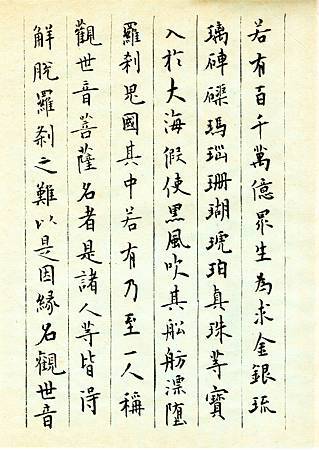 若有百千萬億眾生為求金銀琉
璃硨磲瑪瑙珊瑚琥珀真珠等寶
入於大海假使黑風吹其船舫漂墮
羅剎鬼國其中若有乃至一人稱
觀世音菩薩名者是諸人等皆得
解脫羅剎之難以是因緣名觀世音